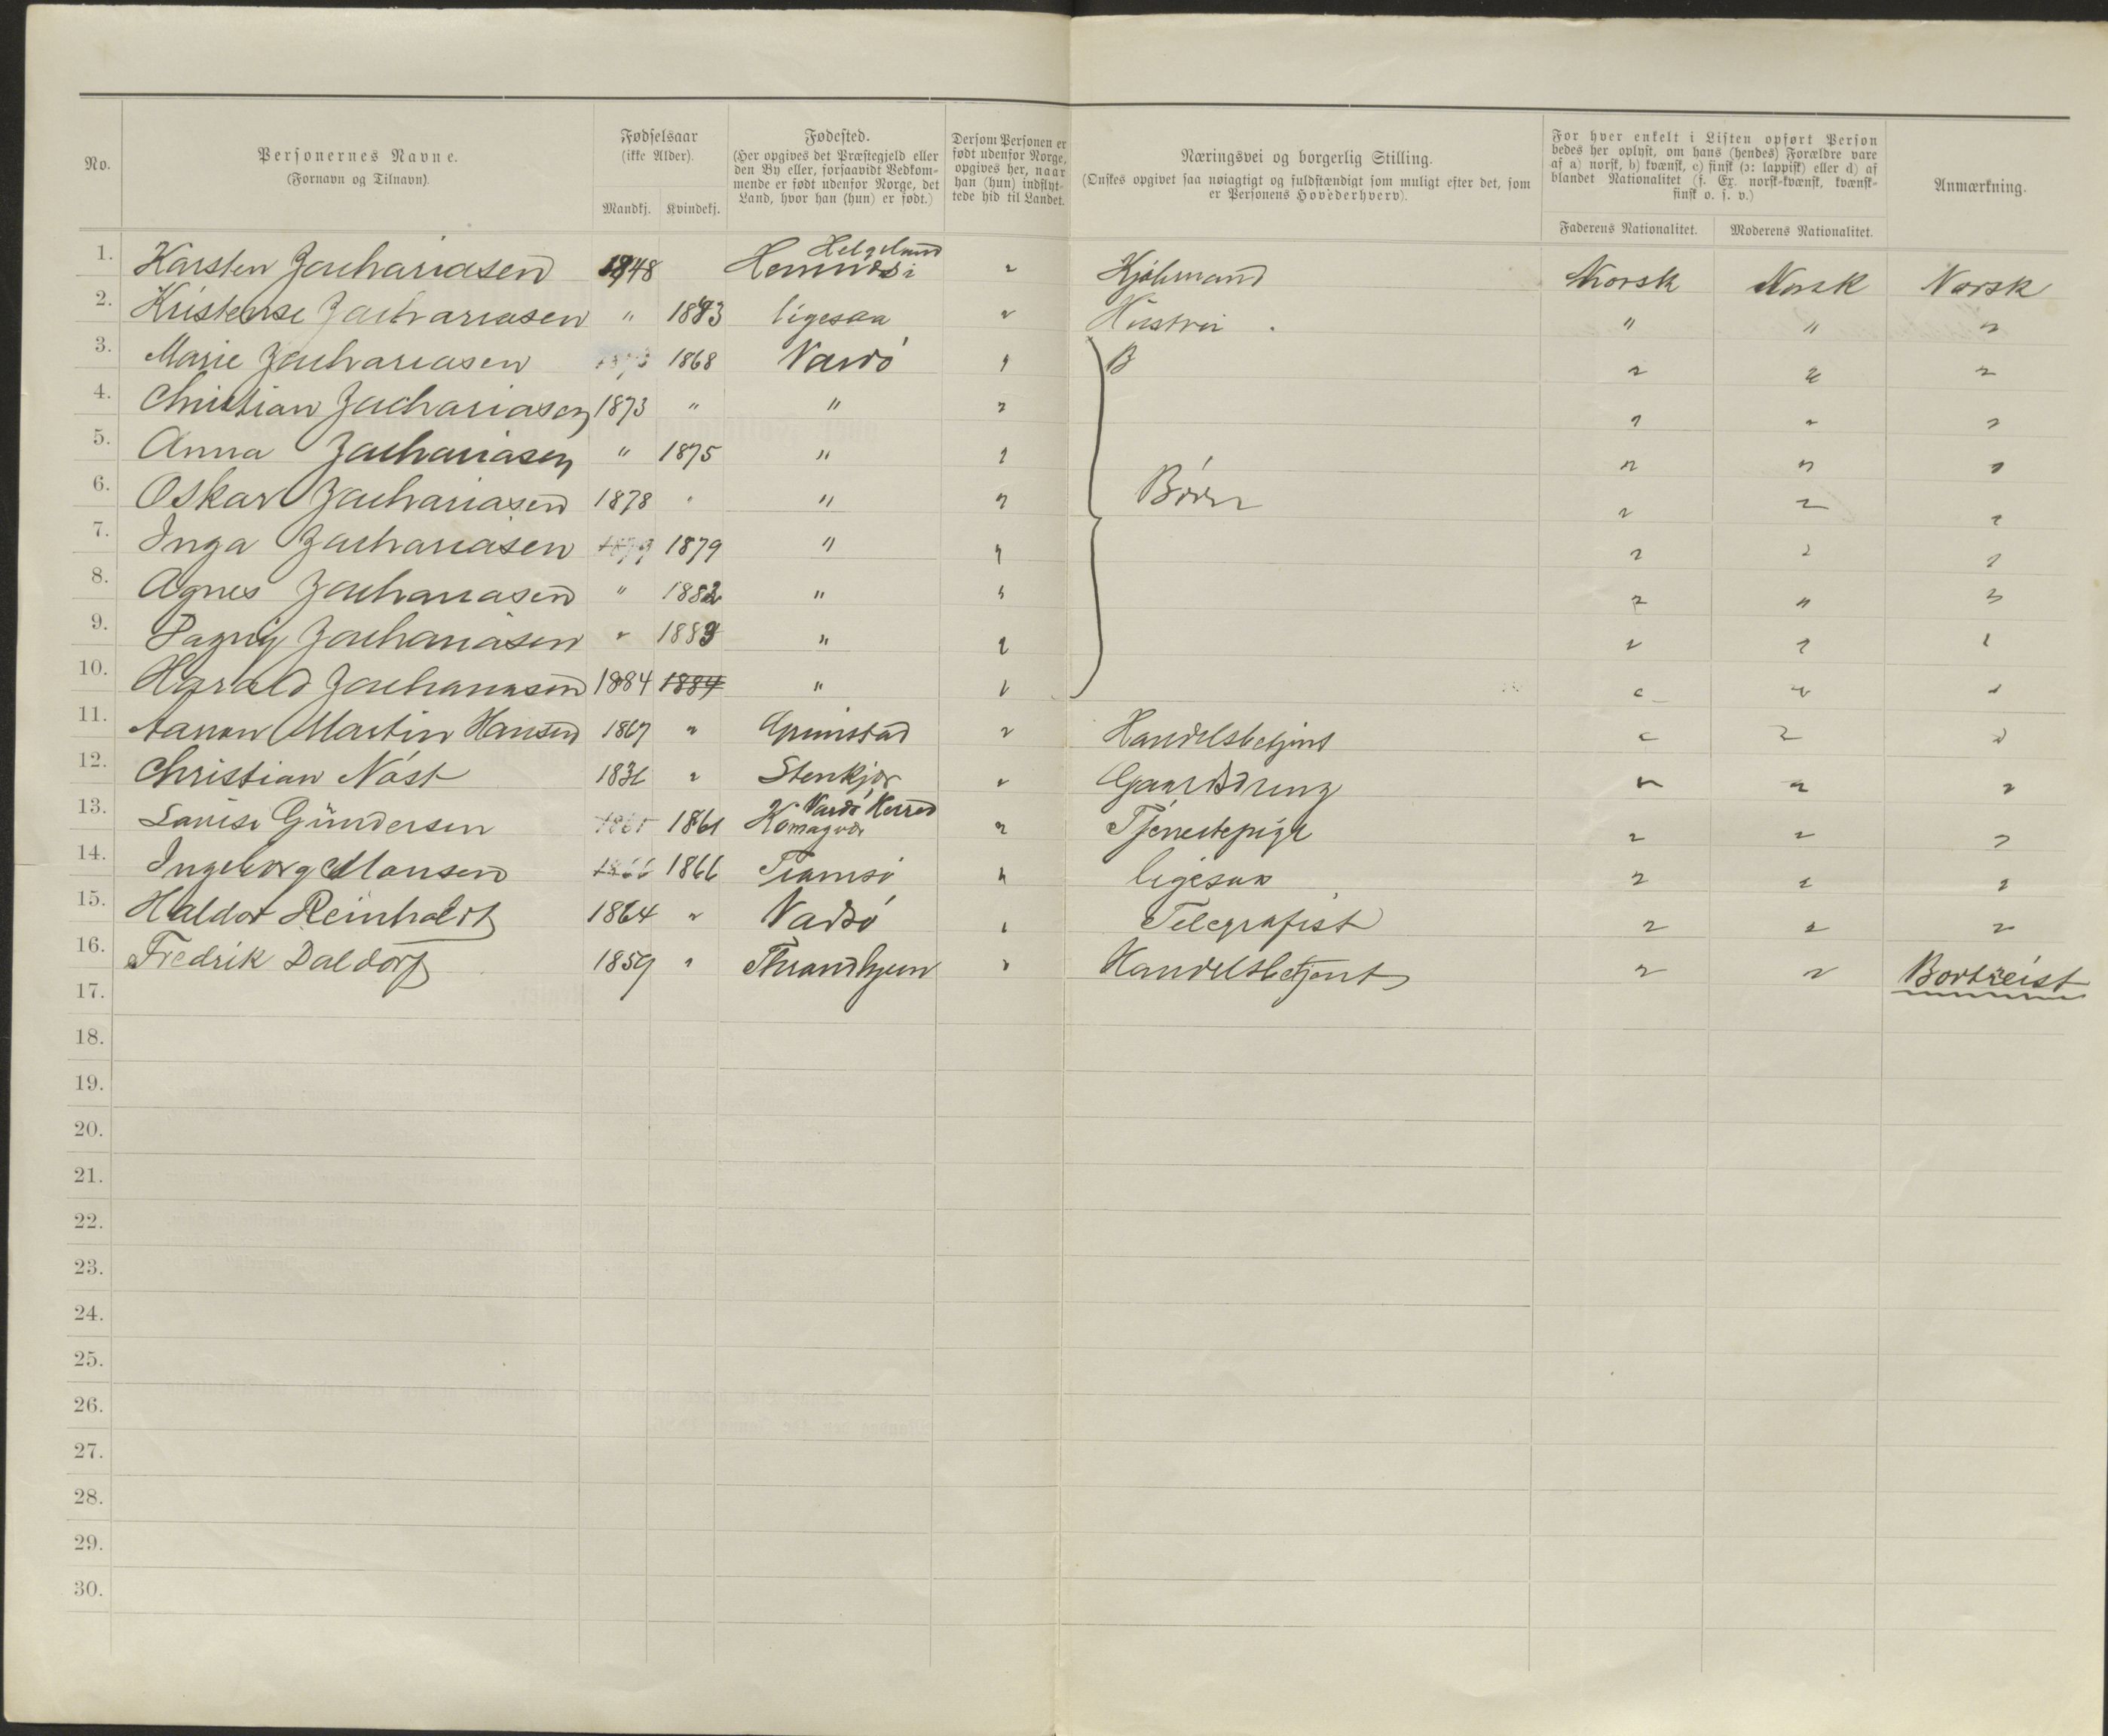 No.
Personernes Navne.
(Fornavn og Tilnavn).
Fødselsaar
(ikke Alder).
Mandkj. Kvindekj.
Fødested.
(Her opgives det Præstegjeld eller
den By eller, forsaavidt Vedkom-
mende er født udenfor Norge, det
Land, hvor han (hun) er født.)
Dersom Personen er
født udenfor Norge,
opgives her, naar
han (hun) indflyt-
tede hid til Landet.
Næringsvei og borgerlig Stilling.
(Ønskes opgivet saa nøiagtigt og fuldstændigt som muligt efter det, som
er Personens Hovederhverv).
For hver enkelt i Listen opført Person
bedes her oplyst, om hans (hendes) Forældre vare
af a) norsk, b) kvænsk, c) finsk (ɔ: lappisk) eller d) af
blandet Nationalitet (f. Ex. norsk-kvænsk, kvænsk-
finsk o. s. v.)
Faderens Nationalitet. Moderens Nationalitet.
Anmærkning.
Helgeland
1. Karsten Zachariasen 1848 " Kjøbmand Norsk Norsk Norsk
2. Kristense Zachariasen " ligesaa " Hustru " " "
3. Marie Zachariasen 1868 Vardö " B " " "
4. Christian Zachariasen 1873 " " " " " "
5. Anna Zachariasen " 1875 " " " " "
6. Oskar Zachariasen 1878 " " " Börn " " "
7. Inga Zachariasen 1879 1879 " " " " "
8. Agnes Zachariasen " 1882 " " " " "
9. Dagny Zachariasen " 1883 " " " " "
10. Harald Zachariasen 1884 1884 " " " " "
11. Aanon Martin Hansen 1867 " Grimstad " Handelsbetjent " " "
12. Christian Näst 1836 " Stenkjer " Gaardsdreng " " "
Vardö Herred
13. Lovise Gündersen 1861 Komagvær " Tjenestepige " " "
14. Ingeborg Monsen 1866 1866 Tromsö " ligesaa " " "
15. Haldor Reinholdt 1864 " Vadsö " Telegrafist " " "
16. Fredrik Daldorf 1859 " Thrandhjem " Handelsbetjent " " Bortreist
17.
18.
19.
20.
21.
22.
23.
24.
25.
26.
27.
28.
29.
30.